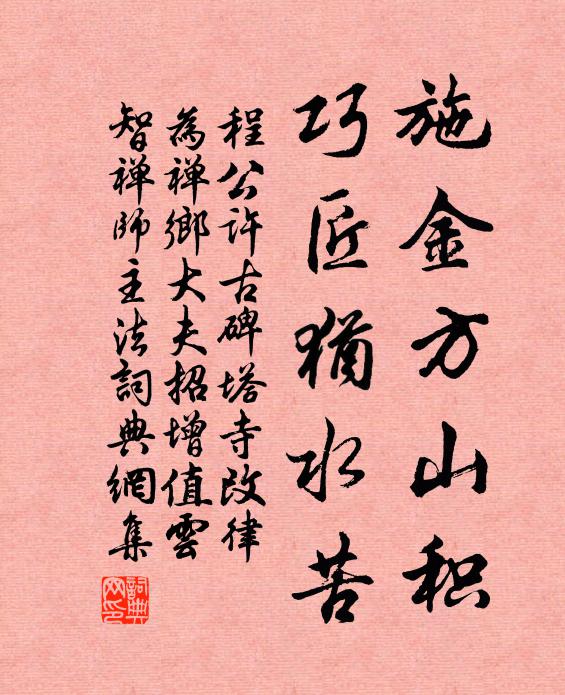 施金方山积
巧匠犹水苦
程公许古碑塔寺改律
為禅鄉大夫招增值雲
智禅師主法詞典網集
詞典网印